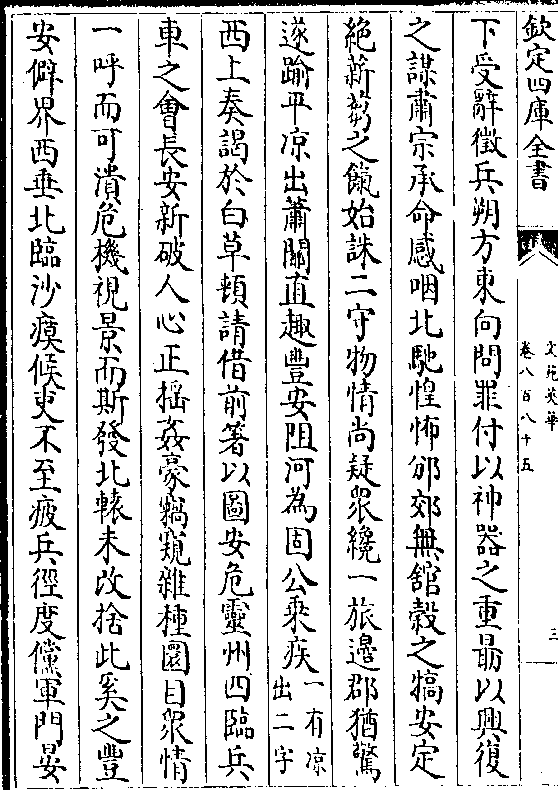 欽定四庫全書
文苑英華
卷八百八十五
三
下受辭徵兵朔方東向問罪付以神器之重勗以興復
之謀肅宗承命感咽北馳惶怖邠郊無舘穀之犒安定
絶新芻之餼始誅二守物情尚疑衆纔一旅邉郡猶驚
遂踰平凉出蕭關直趣豐安阻河為固公乘疾一有凉出二字
西上奏謁於白草頓請借前箸以圖安危靈州四臨兵
車之會長安新破人心正揺姦豪竊窺雜種圜目衆情
一呼而可潰危機視景而斯發北轅未改捨此奚之豐
安僻界西垂北臨沙瘼候吏不至疲兵徑度儻軍門晏